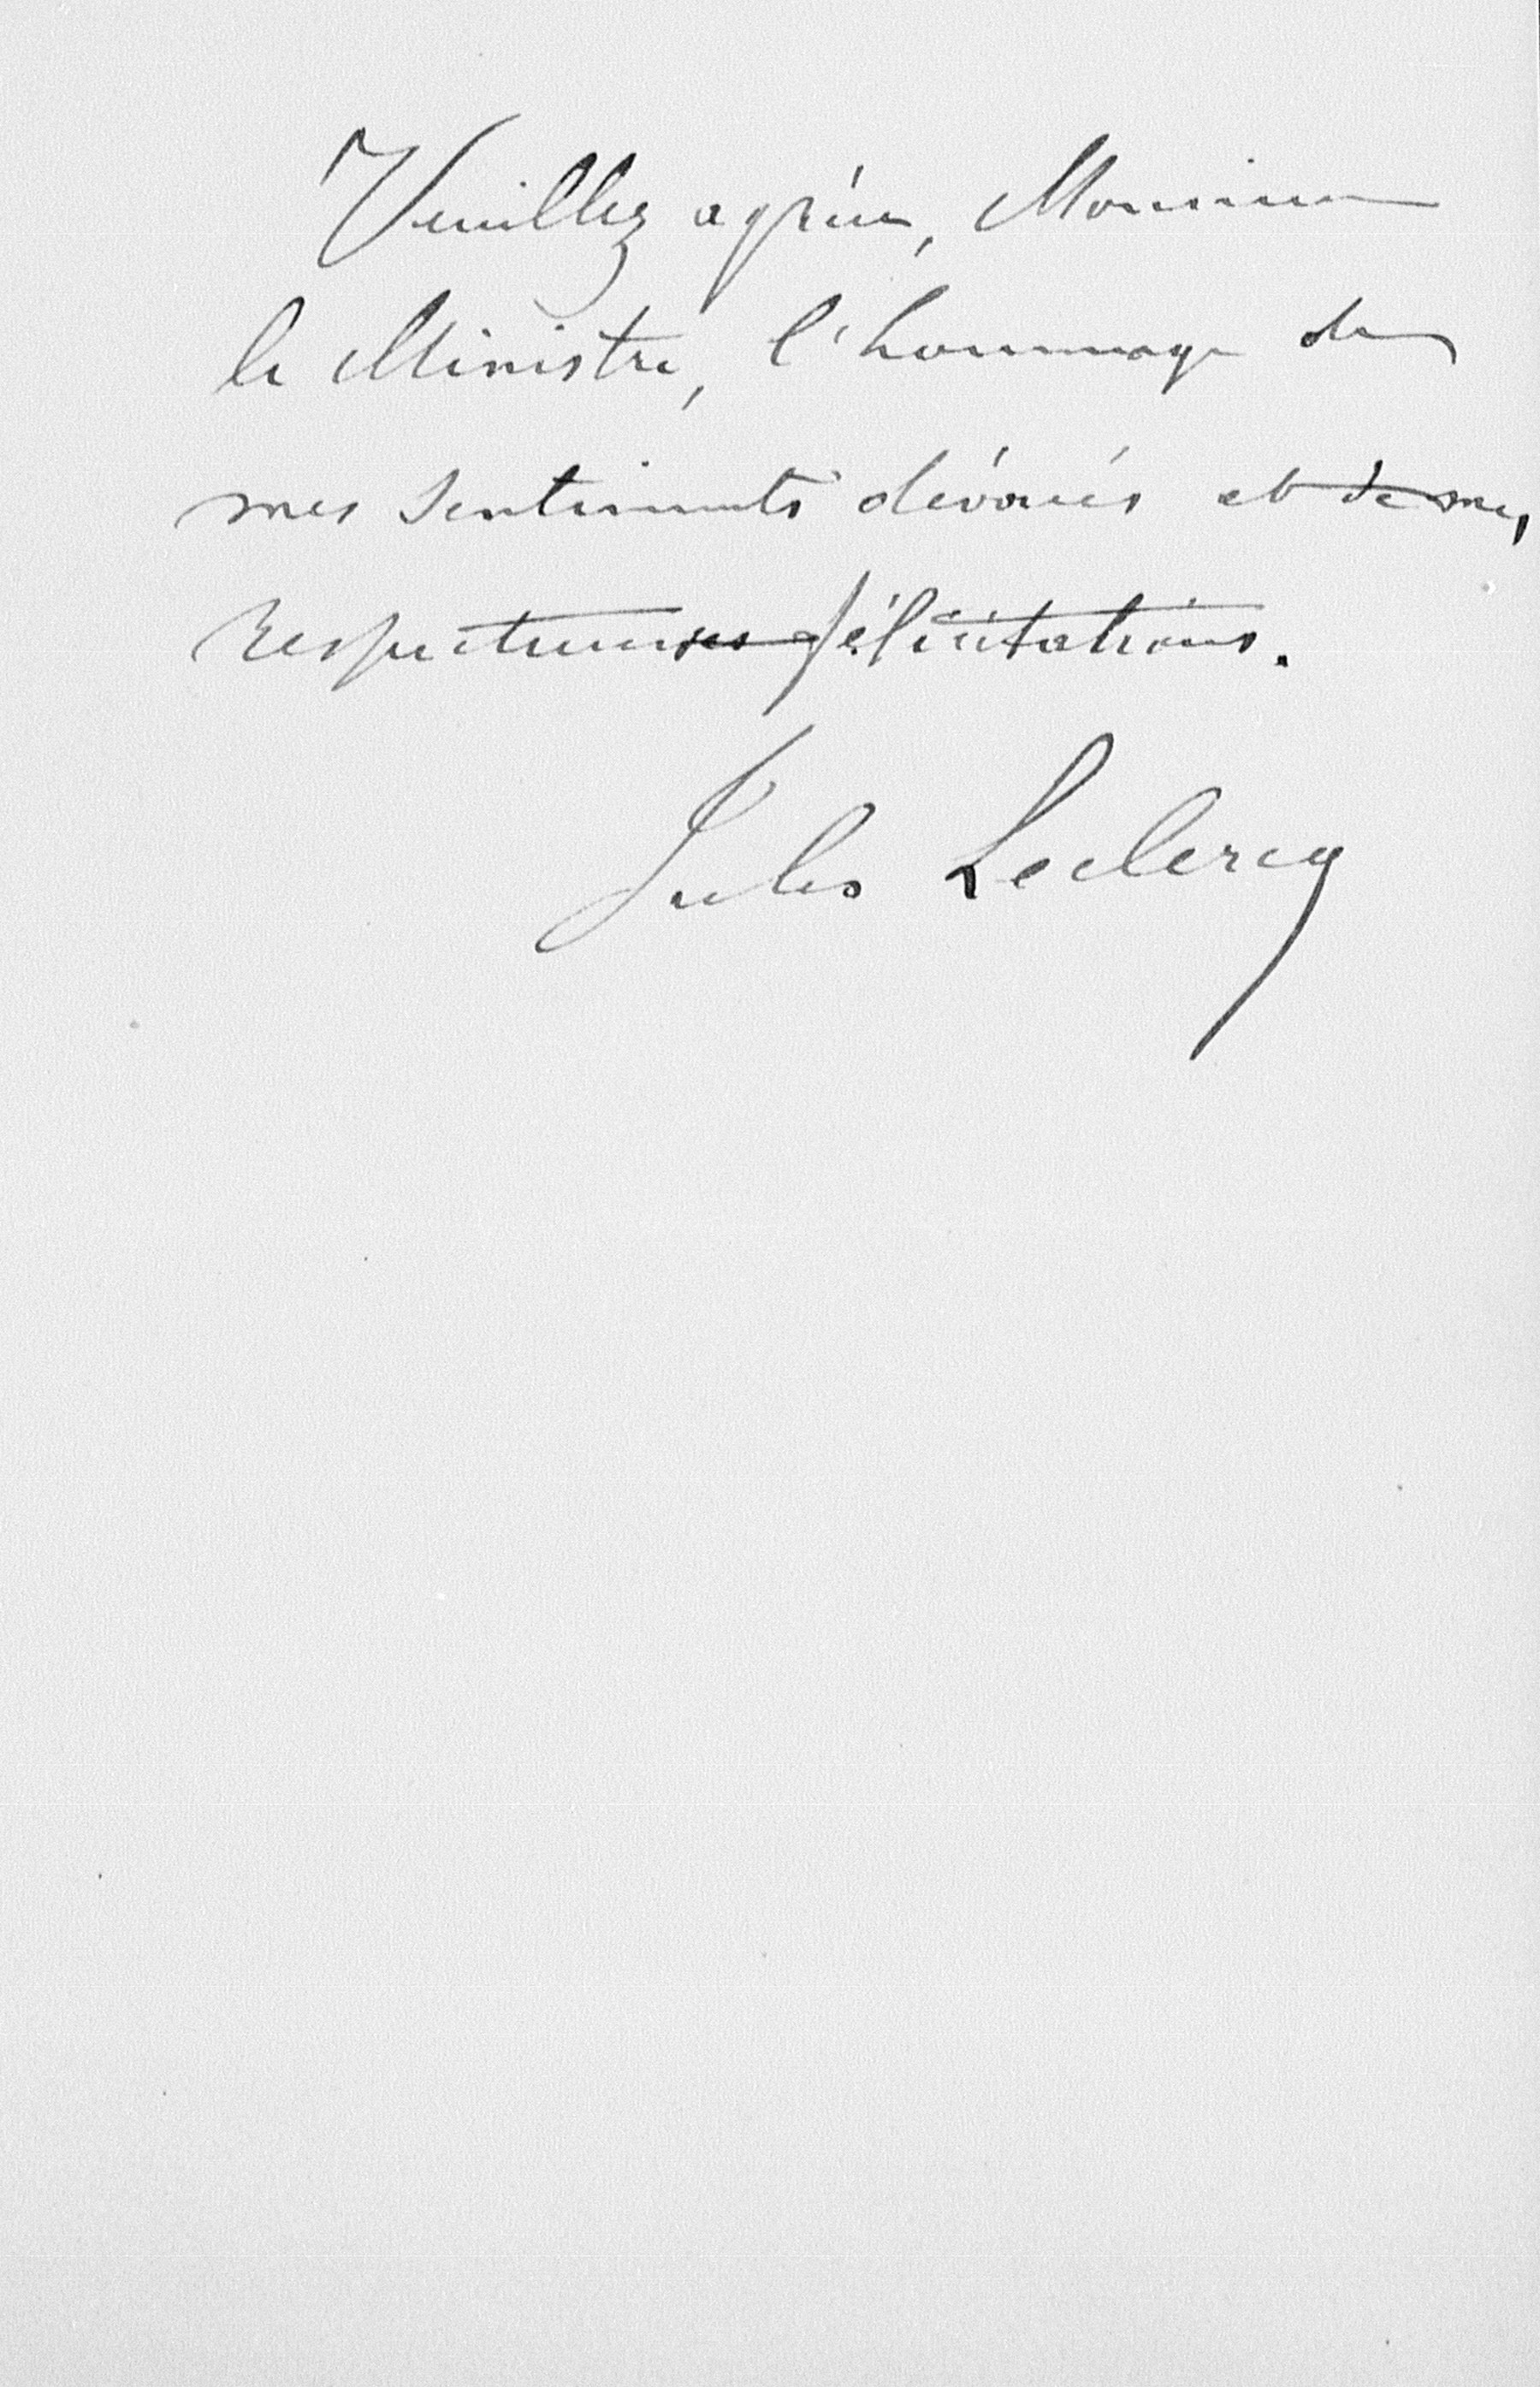 Veuillez agréer, Monsieur
le Ministre, l'hommage de
mes sentiments dévoués et de mes
respectueuses félicitations.
Jules Leclercq